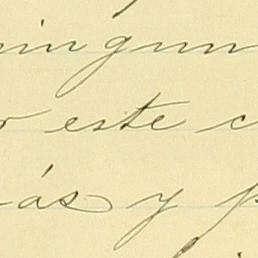 ningun
este c
ás y p